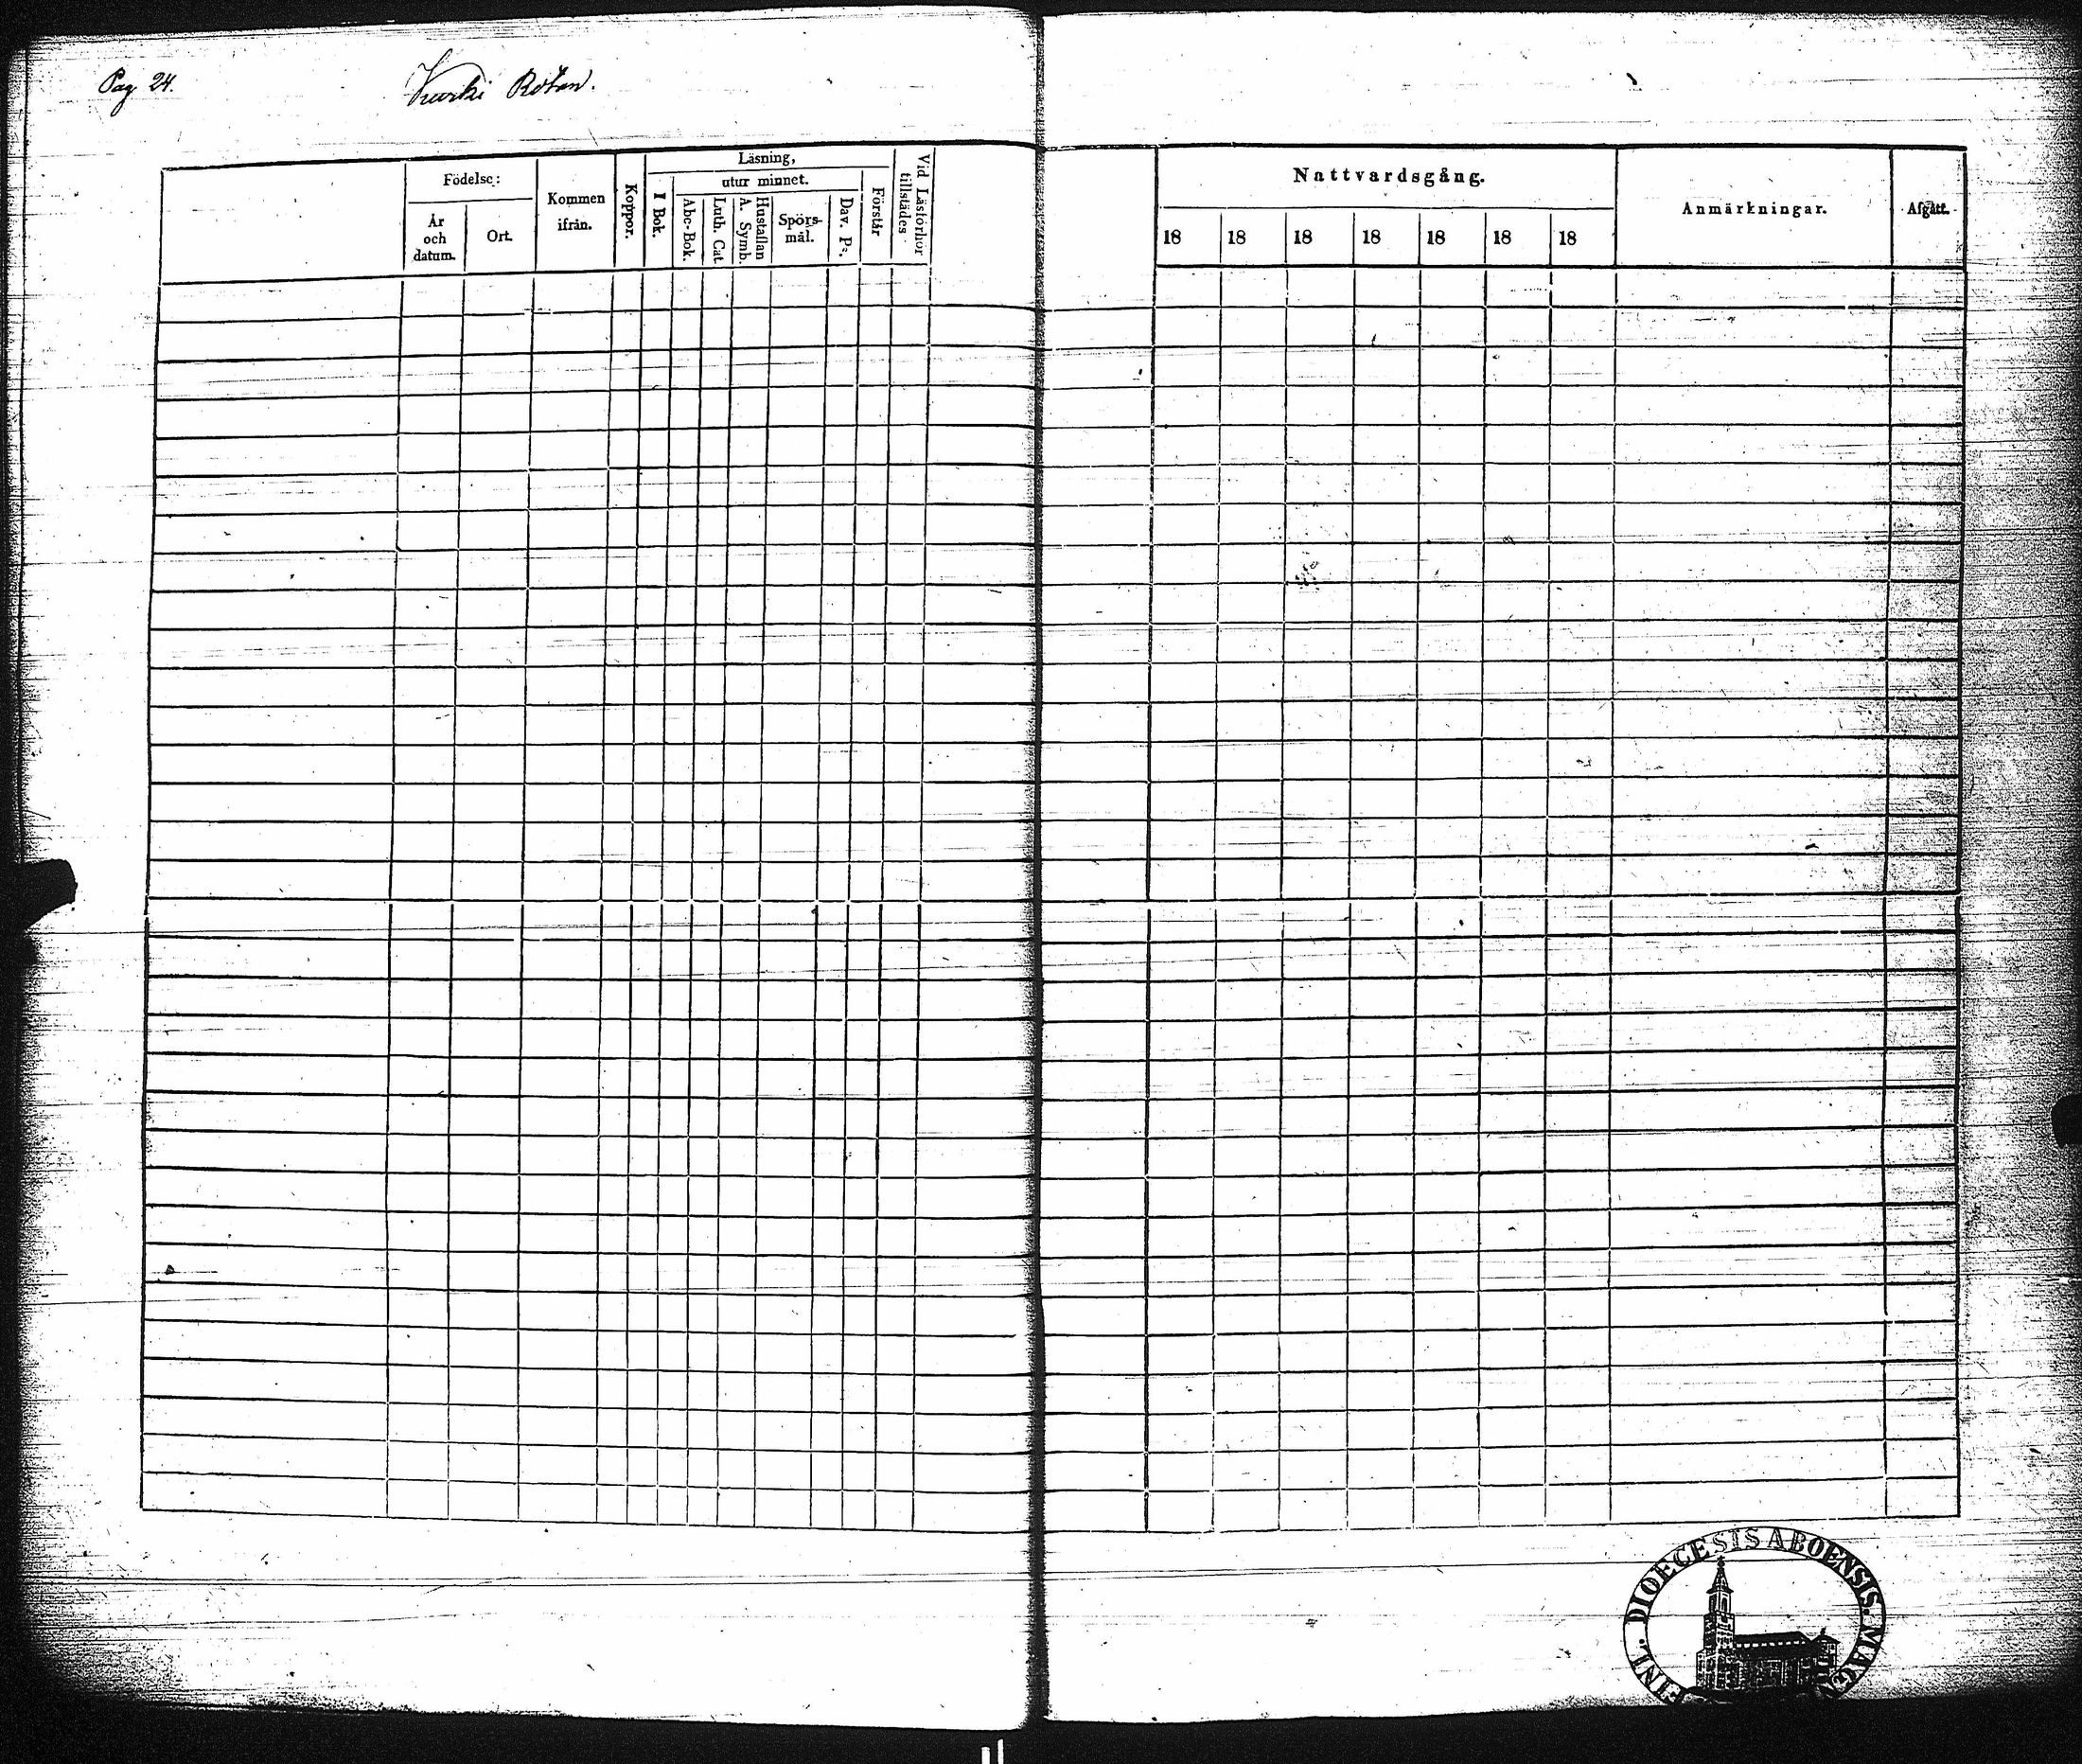 Pag 24.
Kurki Rotan.
Födelse:
År
och
datum.
Ort.
Kommen
ifrån.
Koppor.
Läsning,
I Bok.
utur minnet.
Abc-Bok.
Luth. Cat.
Hustaflan
A. Symb.
Spörs-
mål.
Dav. Ps.
Förstår
Vid Läsförhör
tillstädes
Nattvardsgång.
18 18 18 18 18 18 18
Anmärkningar.
Afgått.
FINL. DIOECESIS ABOENSIS. MAG